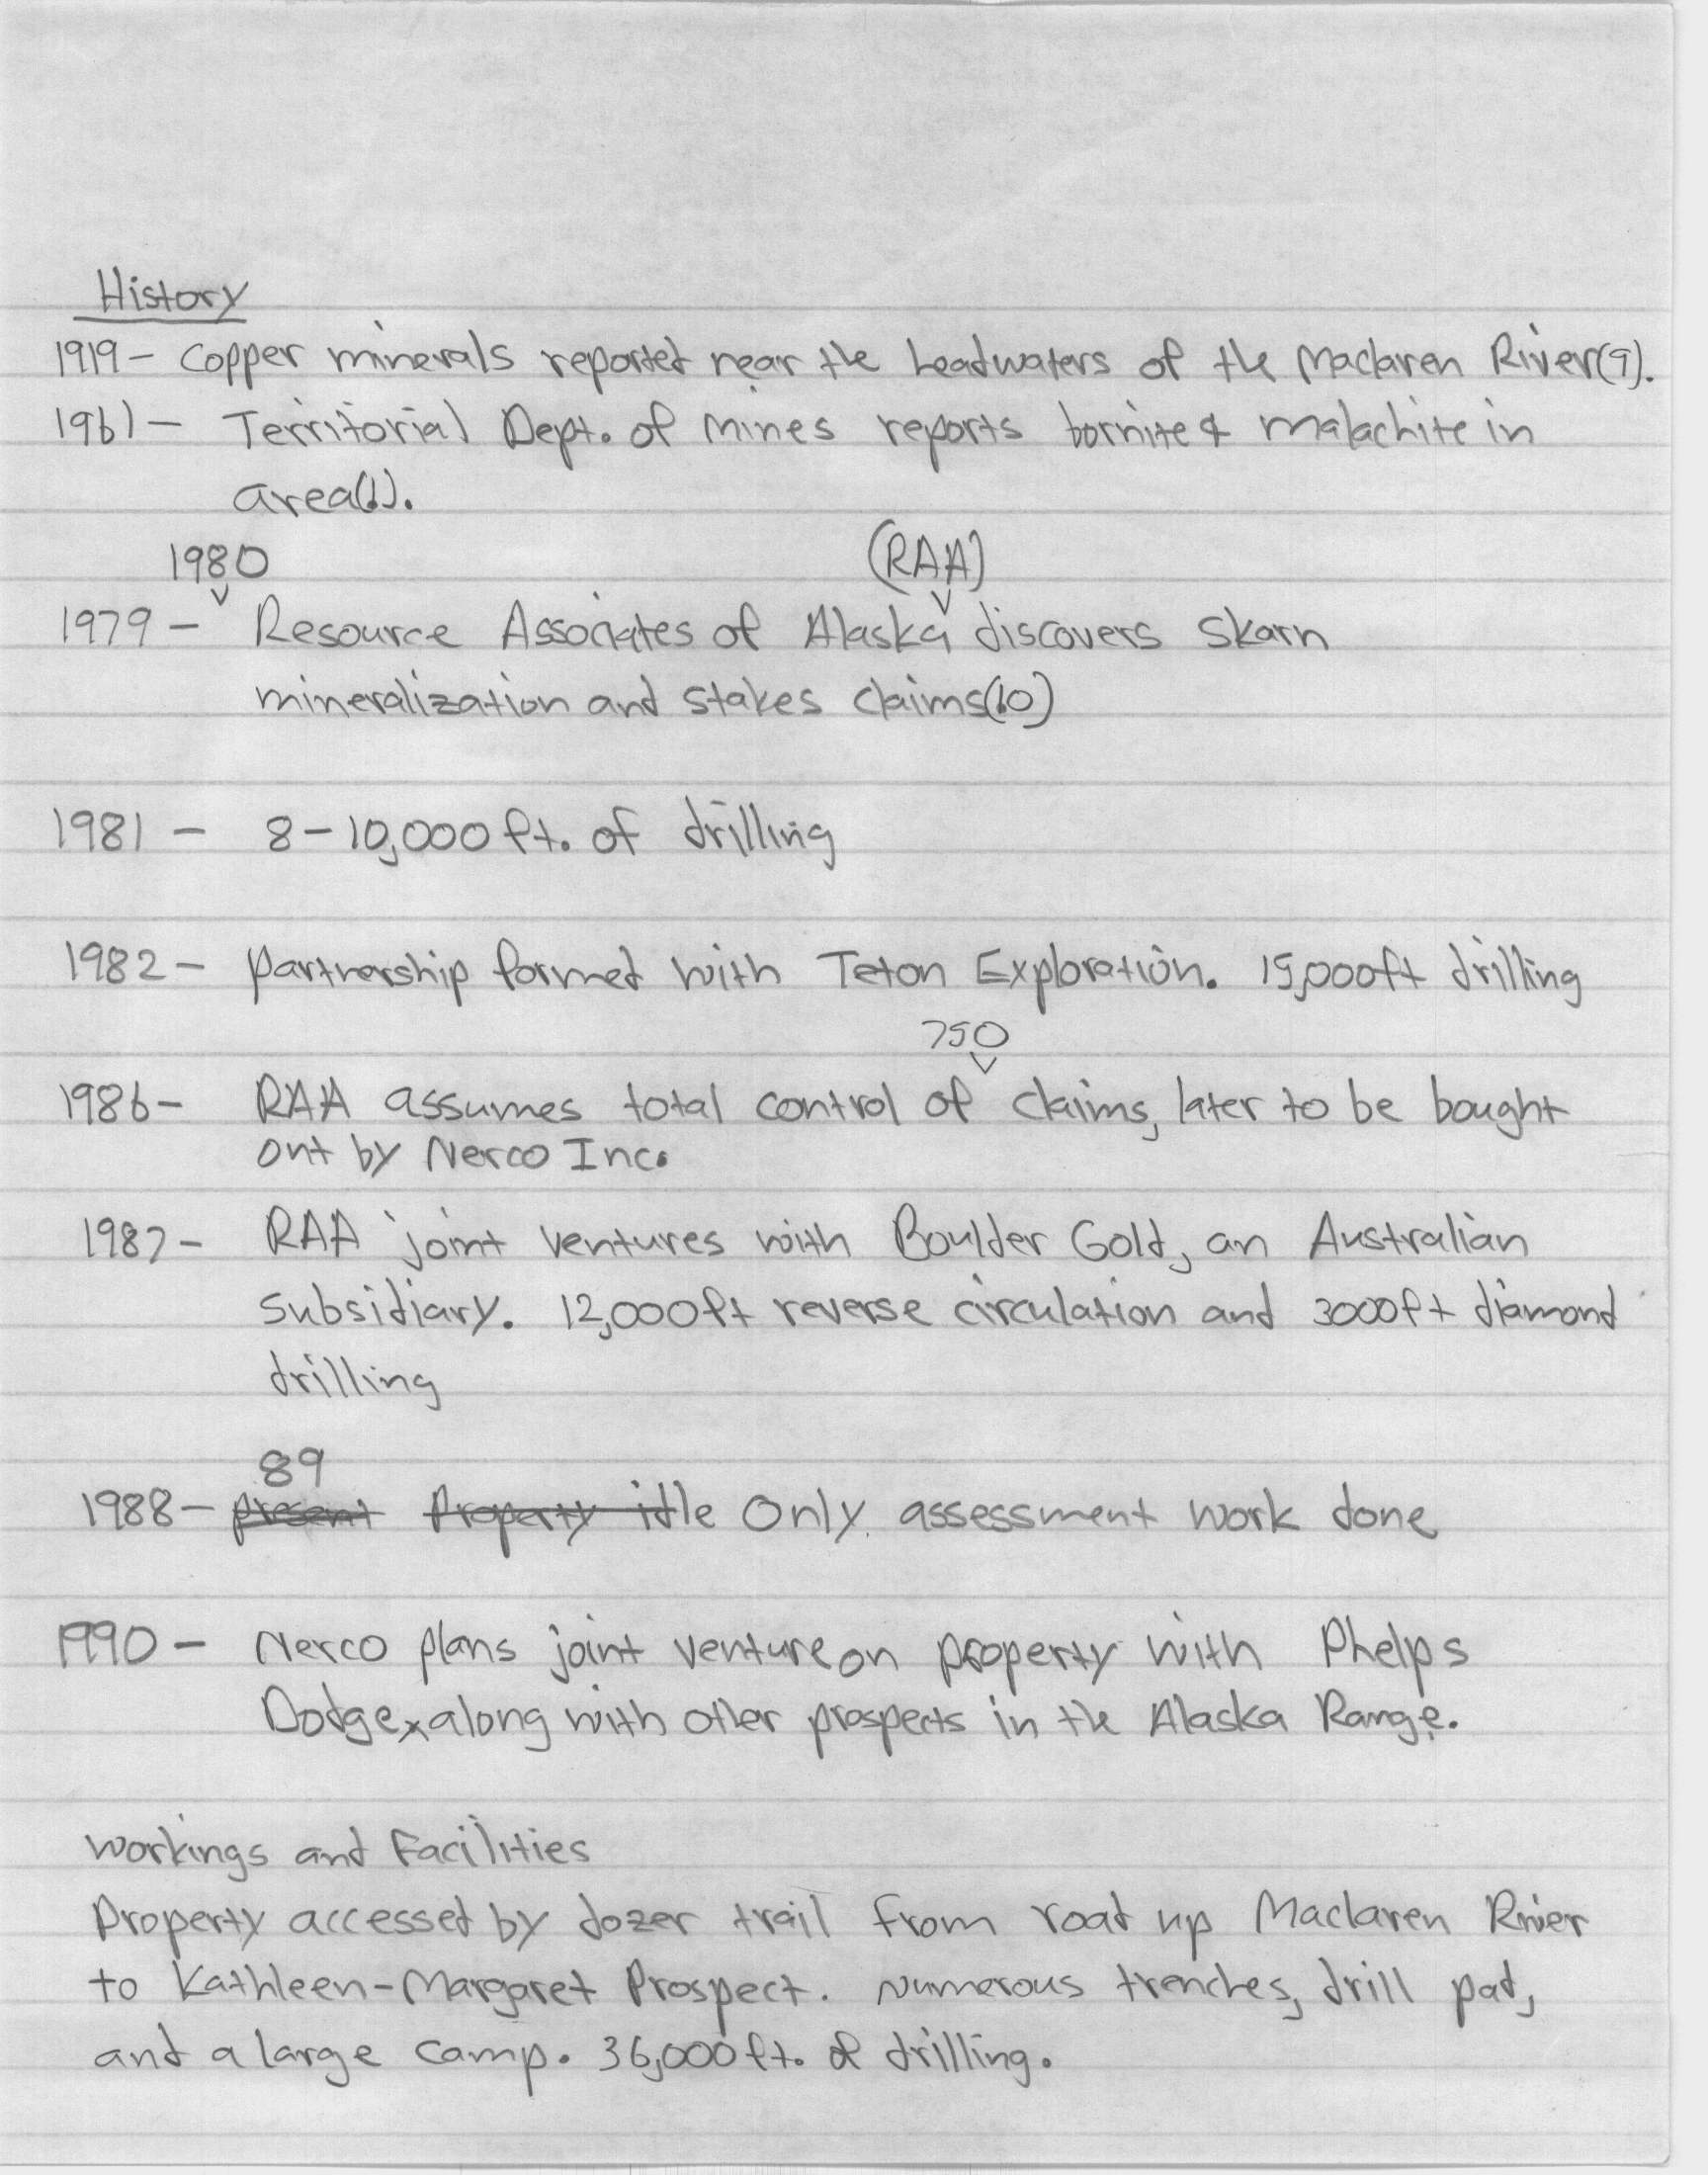 History
1919- Copper minerals reported near the headwaters of the Maclaren River(9).
1961- Territorial Dept. of Mines reports bornite & malachite in
area(1).
1980 (RAA)
1979- Resource Associates of Alaska discovers skarn
mineralization and stakes claims(10)
1981- 8-10,000 ft. of drilling
1982- Partnership formed with Teton Exploration. 15,000ft drilling
750
1986- RAA assumes total control of claims, later to be bought
out by Nerco Inc.
1987- RAA joint ventures with Boulder Gold, an Australian
subsidiary. 12,000ft reverse circulation and 3000ft diamond
drilling
89
1988- present Property idle Only assessment work done
1990- Nerco plans joint venture on property with Phelps
Dodge, along with other prospects in the Alaska Range.
Workings and Facilities
Property accessed by dozer trail from road up Maclaren River
to Kathleen-Margaret Prospect. Numerous trenches, drill pad,
and a large camp. 36,000 ft. of drilling.